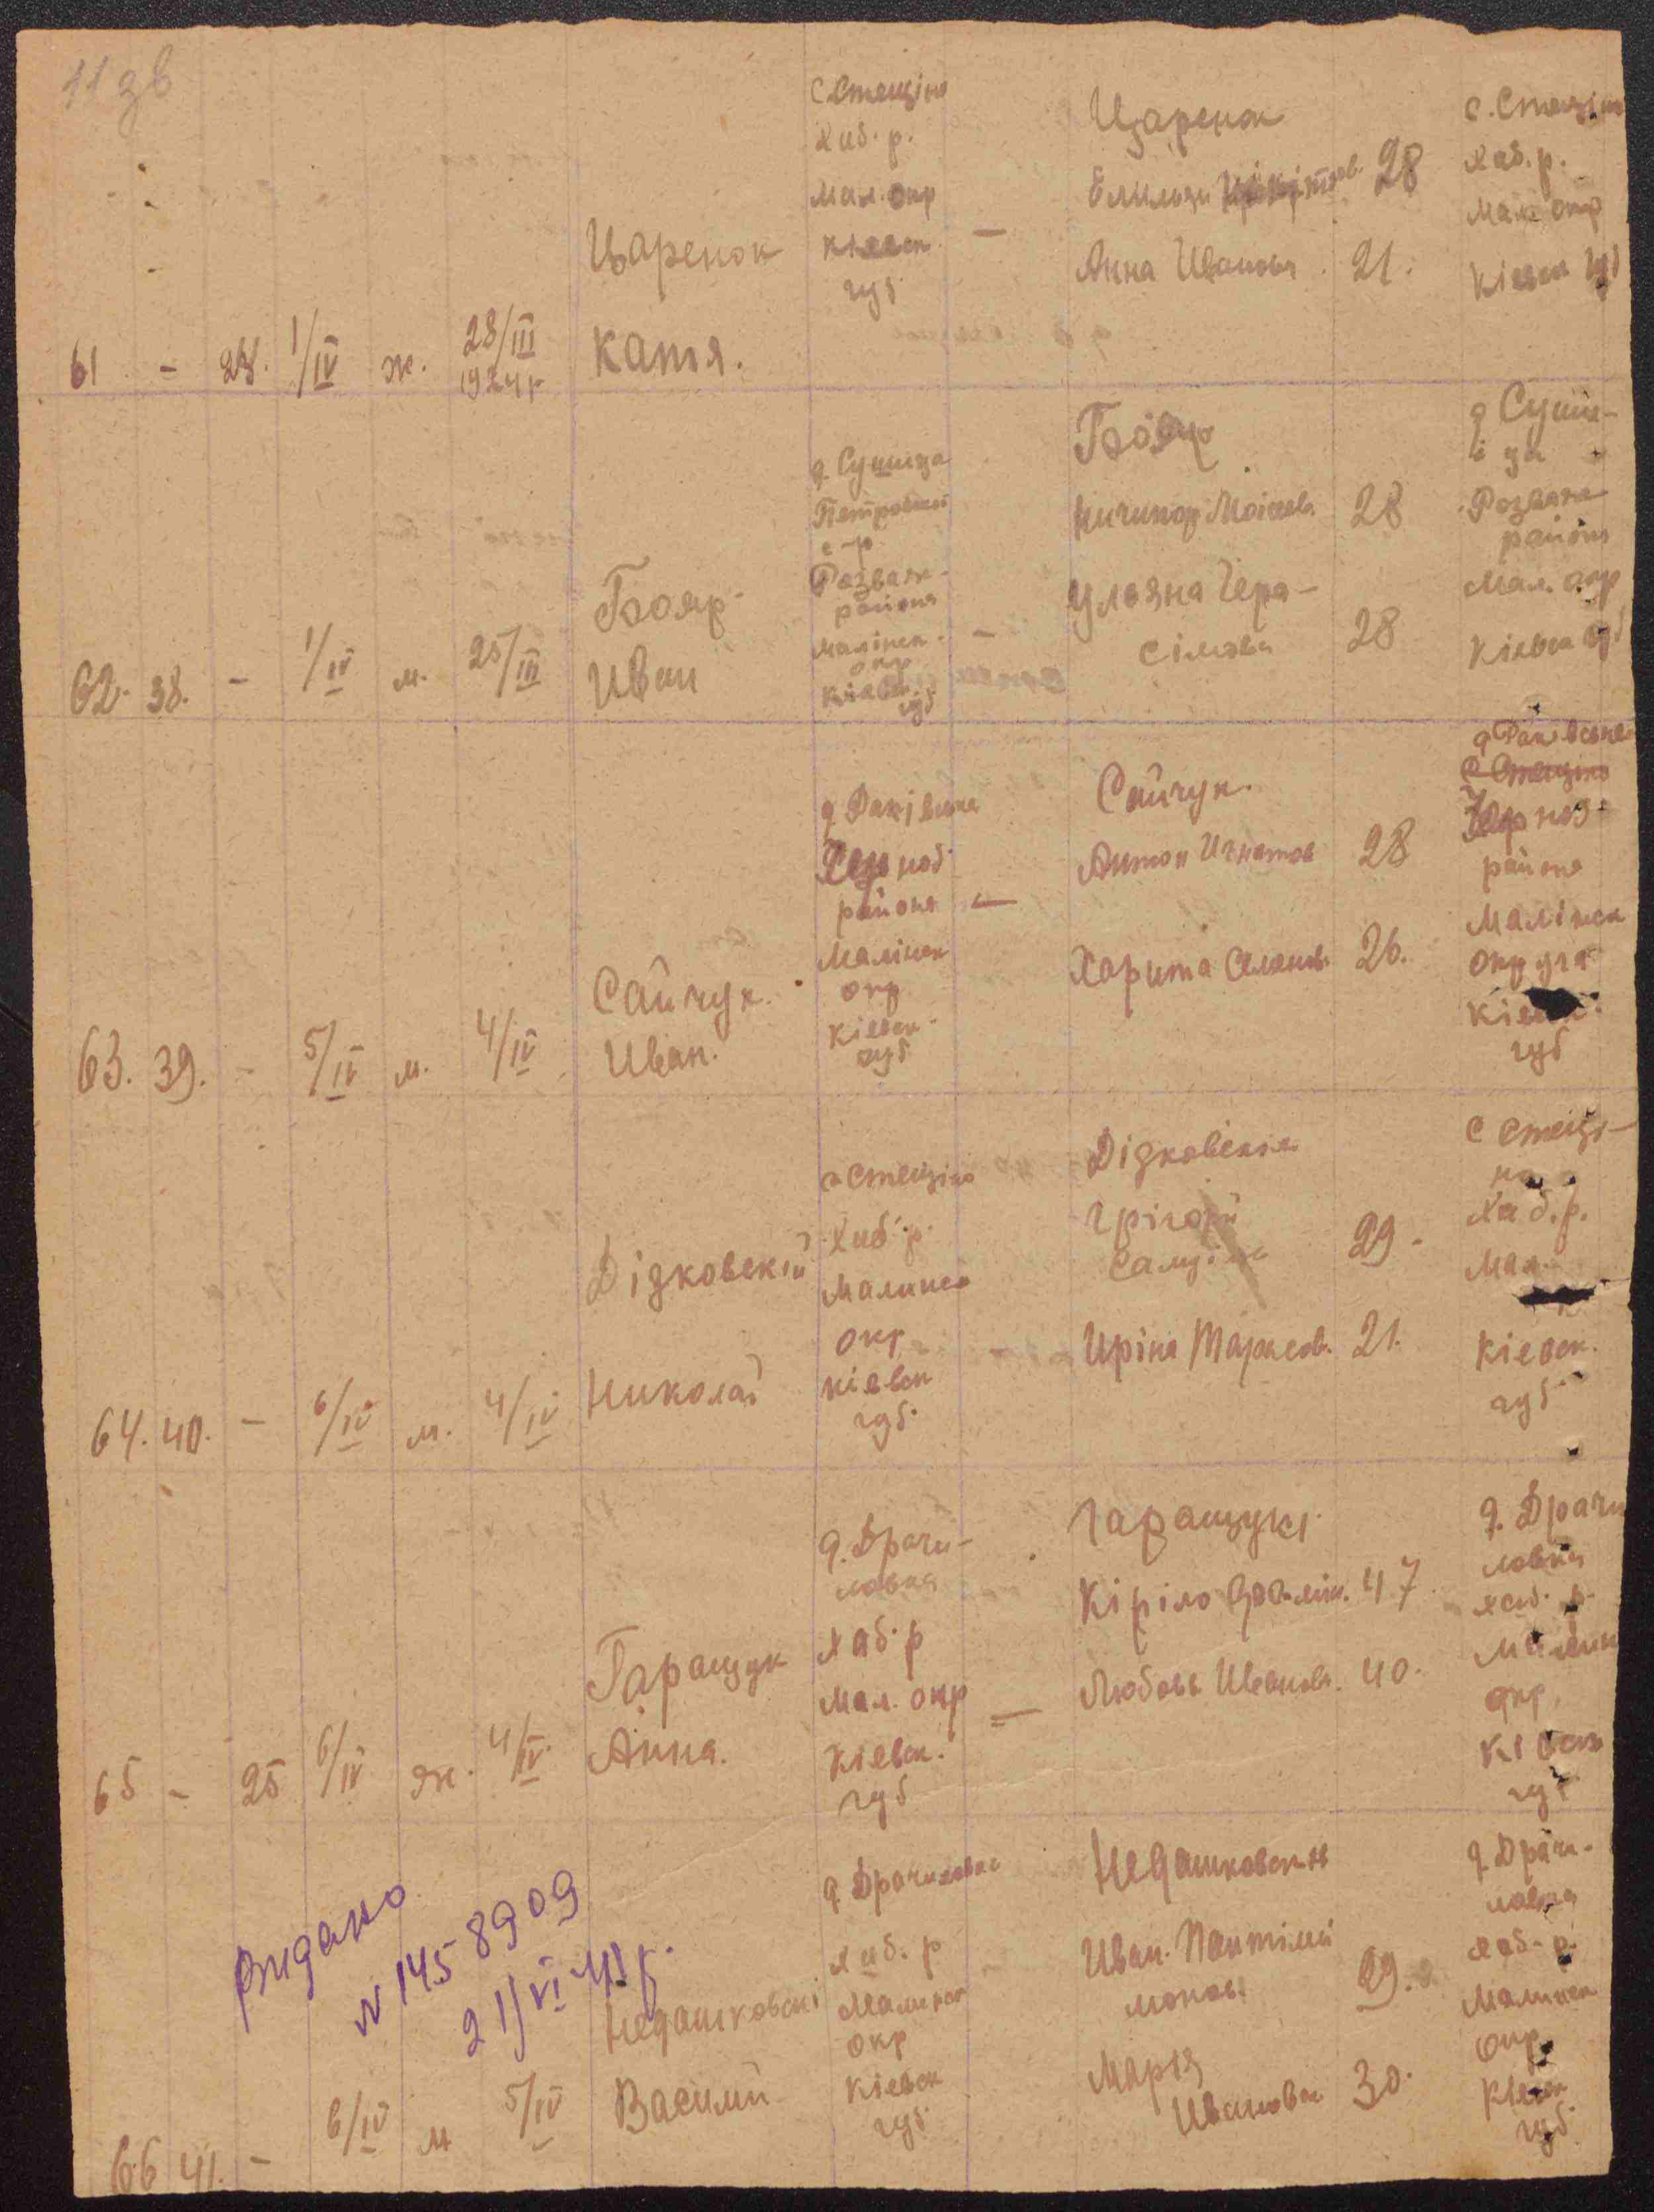 11 зв
61 – 24. 1/IV ж. 28/III 1924 г
Царенок
Катя.
с. Стещіно
Хаб. р.
Мал. окр
Кіевск
губ
–
Царенок
Емильян 28
Анна Иванова 21.
с. Стещіно
Хаб. р.
Мал. окр
Кіевск губ
62. 38. – 1/IV м. 25/III
Бояр
Иван
д. Сушица
Петровской
с-р
Розваж-
района
Малінск.
окр
Кіевск.
губ
–
Бояр
Ничипор Моісеев. 28
Ульяна Гера-
сімова 28
д Суши-
ца
Розваж
района
Мал. окр
Кіевск губ
63. 39. – 5/IV м. 4/IV
Сайчук.
Иван.
д
района
Малінск
окр
Кіевск.
губ
–
Сайчук.
Антон Игнатов 28
Харита Семенов. 26.
д
с Стещіно
района
Малінск
округа
губ
64. 40. – 6/IV м. 4/IV
Дідковскій
Николай
с Стещіно
Хаб. р.
Малинск
окр
Кіевск
губ.
–
Дідковскіе
Грігорій
29.
Иріна Марков. 21.
с Стеші-
но
Хаб. р.
Мал.
Кіевск.
губ
65 – 25 6/IV ж. 4/IV.
Гаращук
Анна.
д. Драчи-
ловка
Хаб. р
Мал. окр
Кіевск.
губ
–
Гаращукі
Кіріло 47
Любовь Иванов. 40.
д. Драчи
ловка
Хаб. р.
Малин
окр.
Кіевск
губ
Видано
N 1458909
21/VI 41 р.
66 41. – 6/IV м 5/IV
Недашковскі
Василий
д Драчиловка
Хаб. р
Малинск
окр
Кіевск
губ
–
Недашковскі
Иван. Пантілій
монов. 29.
Марія
Ивановна 30.
д Драчи-
ловка
Хаб. р.
Малинск
окр.
Кіевск
губ.